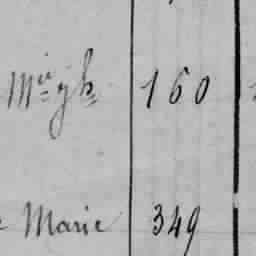 Mie gh 160
Marie 349